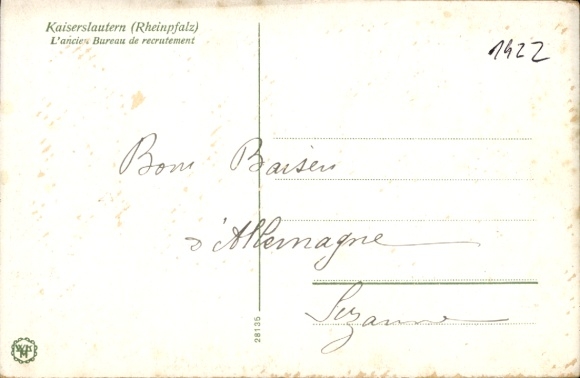 Kaiserslautern (Rheinpfalz)
L'ancien Bureau de recrutement
1922
Bons Baisers
d'Allemagne
Suzanne
28135